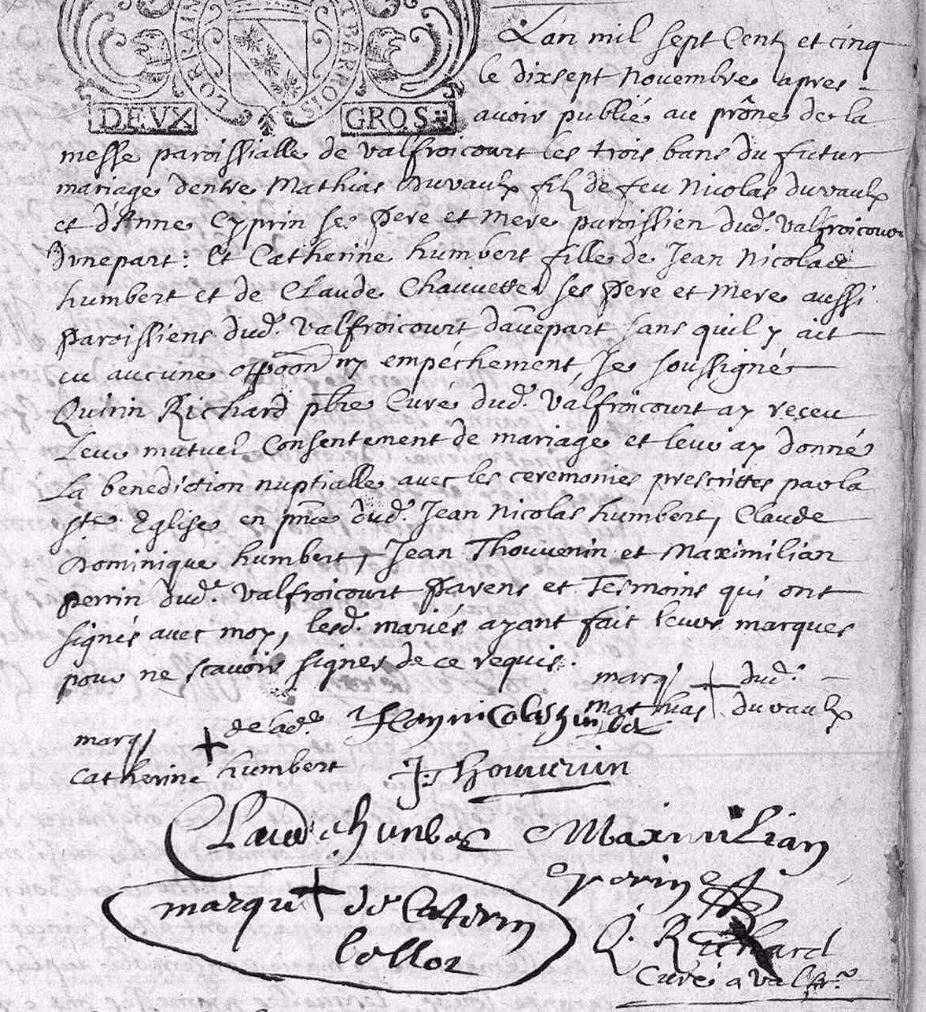 LORRAIN BARROIS
DEVX GROS
Lan mil sept Cent et cinq
le dixsept Novembre apres
avoir publié au prône de la
messe paroissialle de valfroicourt les trois bans du futur
mariage dentre Mathias Duvaulx filz de feu Nicolas duvaulx
et d'Anne Cyprin ses Pere et Mere paroissien dud. valfroicour
d'unepart: Et Catherine humbert fille de Jean Nicolas
humbert et de Claude Chauvette ses Pere et Mere aussi
Paroissiens dud. valfroicourt d'au̅epart sans quil y ait
eu aucune oppoon ny empéchement, Je soussigné
Quirin Richard pbre Curé dud. valfroicourt ay reçeu
Leur mutuel Consentement de mariage et leur ay donné
La benediction nuptialle avec les ceremonies prescrittes par la
ste Eglise en pnce dud. Jean Nicolas humbert, Claude
Dominique humbert, Jean Thouvenin et Maximilian
perrin dud. valfroicourt Parens et Tesmoins qui ont
signés avec moy, lesd. mariés ayant fait leurs marques
pour ne scavoir signer de ce requis.
marq + dud.
mathias duvaulx
marq + de lad.
Catherine humbert
Jean nicolas humber
J. thouvenin
Claud humber
Maximilian
perin
marque + de Caterin
Collot
Q. Richard
Curé a valfr.